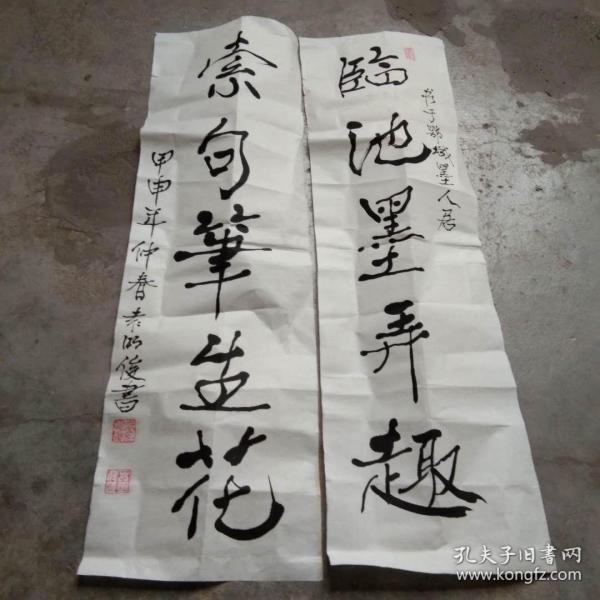 臨池墨弄趣
墨人居
索句筆生花
甲申年仲春袁明俊書
孔夫子旧书网
www.kongfz.com